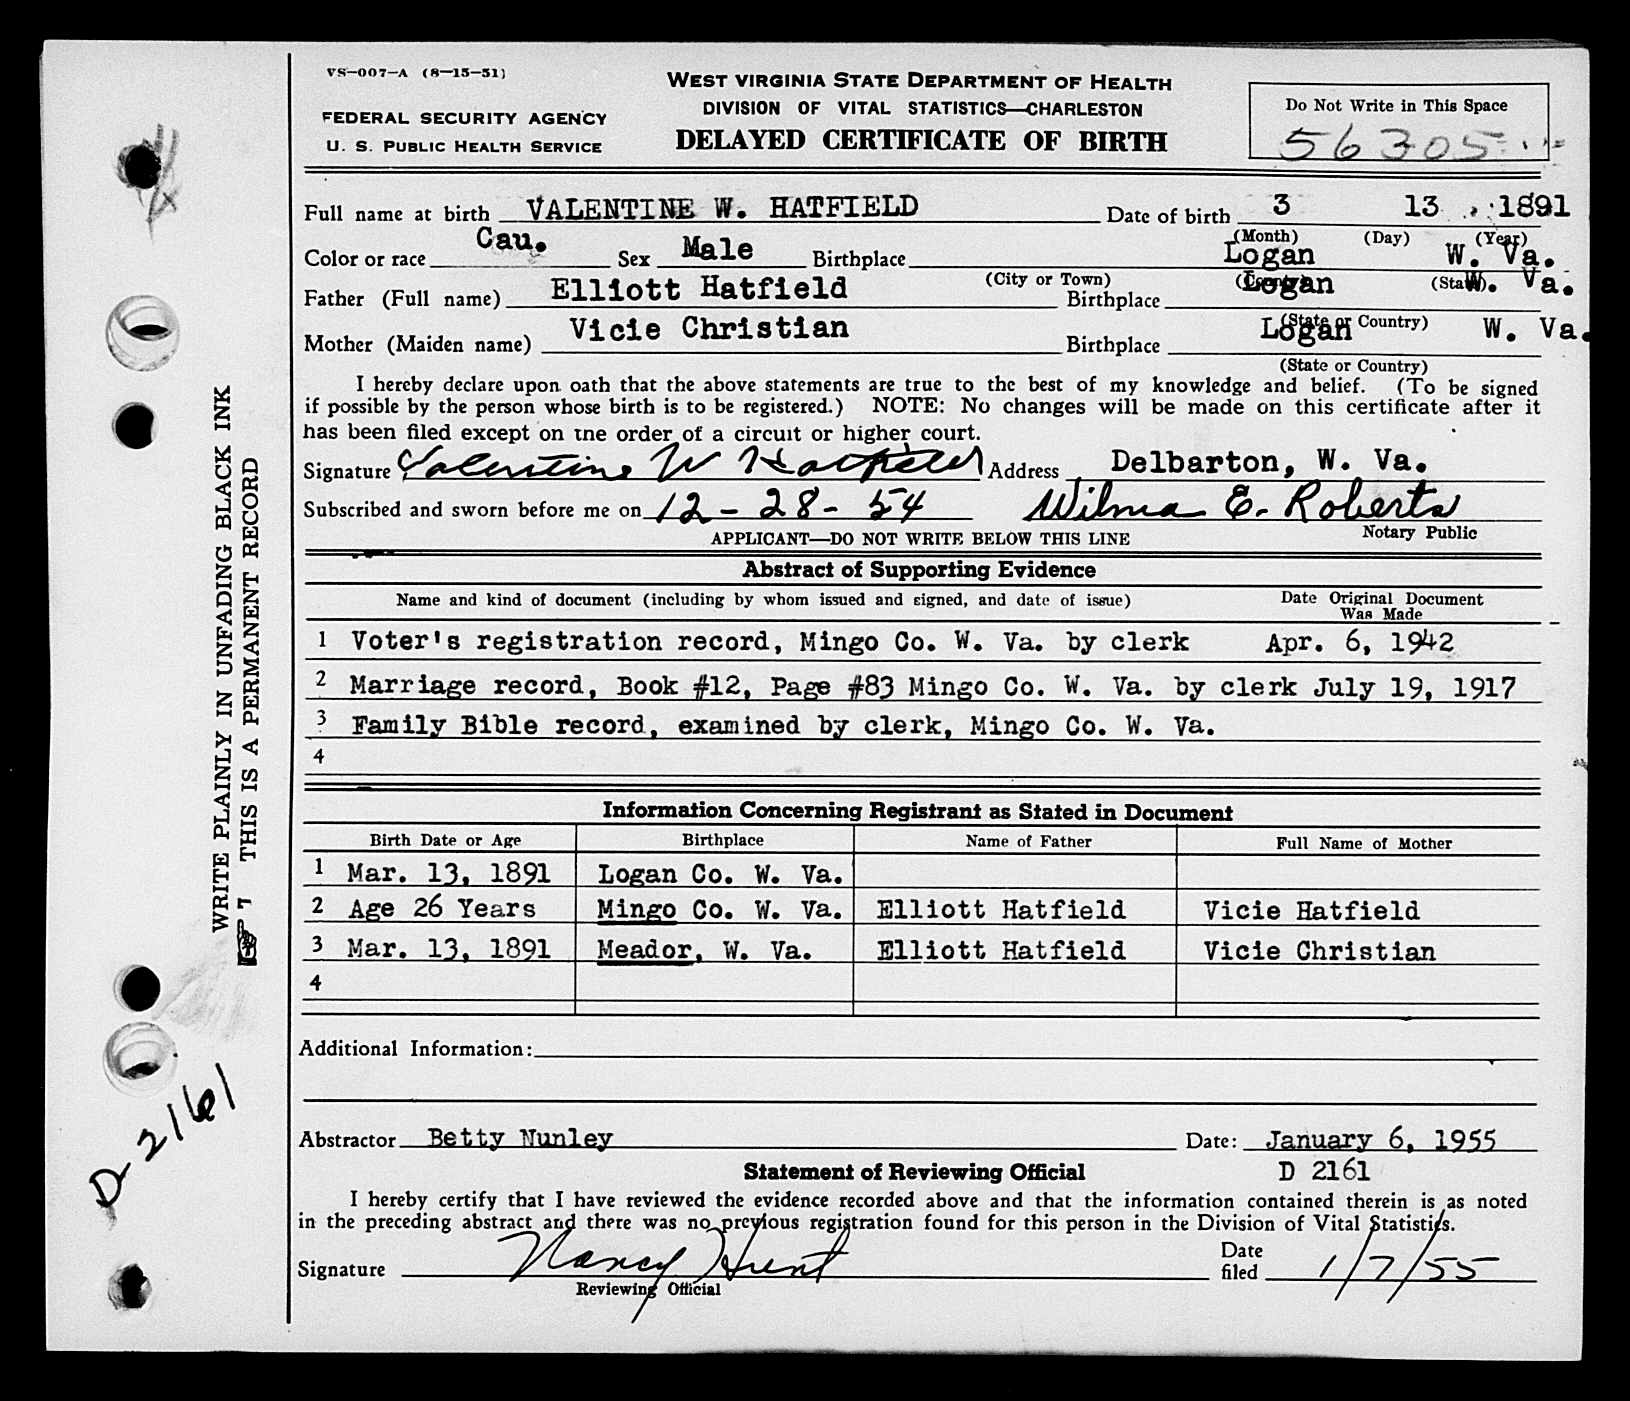 VS—007—A (8—15—51)
FEDERAL SECURITY AGENCY
U. S. PUBLIC HEALTH SERVICE
WEST VIRGINIA STATE DEPARTMENT OF HEALTH
DIVISION OF VITAL STATISTICS—CHARLESTON
DELAYED CERTIFICATE OF BIRTH
Do Not Write in This Space
56305
Full name at birth VALENTINE W. HATFIELD Date of birth 3 13 1891
(Month) (Day) (Year)
Color or race Cau. Sex Male Birthplace Logan W. Va.
(City or Town) (County) (State)
Father (Full name) Elliott Hatfield Birthplace Logan W. Va.
(State or Country)
Mother (Maiden name) Vicie Christian Birthplace Logan W. Va.
(State or Country)
I hereby declare upon oath that the above statements are true to the best of my knowledge and belief. (To be signed
if possible by the person whose birth is to be registered.) NOTE: No changes will be made on this certificate after it
has been filed except on the order of a circuit or higher court.
Signature Valentine W Hatfield Address Delbarton, W. Va.
Subscribed and sworn before me on 12-28-54 Wilma E. Roberts
Notary Public
APPLICANT—DO NOT WRITE BELOW THIS LINE
Abstract of Supporting Evidence
Name and kind of document (including by whom issued and signed, and date of issue) Date Original Document Was Made
1 Voter's registration record, Mingo Co. W. Va. by clerk Apr. 6, 1942
2 Marriage record, Book #12, Page #83 Mingo Co. W. Va. by clerk July 19, 1917
3 Family Bible record, examined by clerk, Mingo Co. W. Va.
4
Information Concerning Registrant as Stated in Document
Birth Date or Age Birthplace Name of Father Full Name of Mother
1 Mar. 13, 1891 Logan Co. W. Va.
2 Age 26 Years Mingo Co. W. Va. Elliott Hatfield Vicie Hatfield
3 Mar. 13, 1891 Meador, W. Va. Elliott Hatfield Vicie Christian
4
Additional Information:
Abstractor Betty Nunley Date: January 6, 1955
Statement of Reviewing Official D 2161
I hereby certify that I have reviewed the evidence recorded above and that the information contained therein is as noted
in the preceding abstract and there was no previous registration found for this person in the Division of Vital Statistics.
Signature Nancy Hunt Date filed 1/7/55
Reviewing Official
WRITE PLAINLY IN UNFADING BLACK INK
THIS IS A PERMANENT RECORD
D-2161